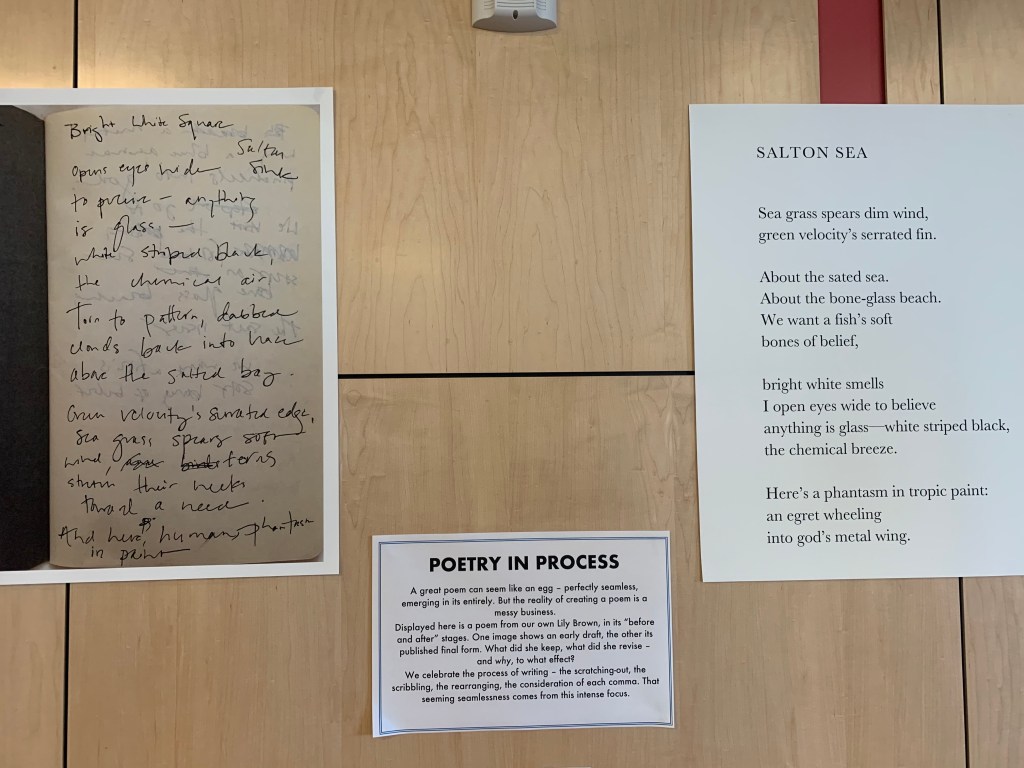 Bright White Square
Salton
opens eyes wide Sink
to praise – anything
is glass —
white striped black,
the chemical air
Torn to pattern, dabbed
clouds back into
above the salted bay.
Green velocity's serrated edge,
Sea grass spears soft
wind, ferns
strum their necks
toward a need.
And here, human phantasm
in paint
POETRY IN PROCESS
A great poem can seem like an egg – perfectly seamless,
emerging in its entirely. But the reality of creating a poem is a
messy business.
Displayed here is a poem from our own Lily Brown, in its “before
and after” stages. One image shows an early draft, the other its
published final form. What did she keep, what did she revise –
and why, to what effect?
We celebrate the process of writing – the scratching-out, the
scribbling, the rearranging, the consideration of each comma. That
seeming seamlessness comes from this intense focus.
SALTON SEA
Sea grass spears dim wind,
green velocity’s serrated fin.
About the sated sea.
About the bone-glass beach.
We want a fish’s soft
bones of belief,
bright white smells
I open eyes wide to believe
anything is glass—white striped black,
the chemical breeze.
Here’s a phantasm in tropic paint:
an egret wheeling
into god’s metal wing.